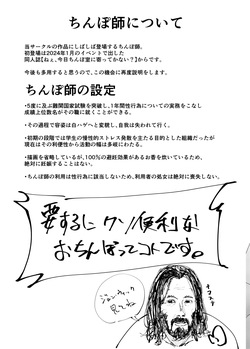 ちんぽ師について
当サークルの作品にしばしば登場するちんぽ師。
初登場は2024年1月のイベントで出した
同人誌【ねぇ、今日ちんぽ室に寄ってかない？】からです。
今後も多用すると思うので、この機会に再度説明をします。
ちんぽ師の設定
・5度に及ぶ難関国家試験を突破し、1年間性行為についての実務をこなし
成績上位数名がその職に就くことができる。
・その過程で容姿は白ハゲへと変貌し、自我は失われて行く。
・初期の段階では学生の慢性的ストレス発散を主たる目的とした組織だったが
現在はその利便性から活動の幅は多岐にわたる。
・描写を省略しているが、100％の避妊効果があるお香を炊いているため、
絶対に妊娠することはない。
・ちんぽ師の利用は性行為に該当しないため、利用者の処女は絶対に喪失しない。
要するにクソ便利な
おちんぽってコトです。
ジョン・ウィック
見てね